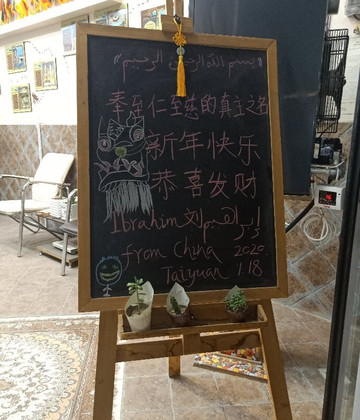 «بسم الله الرحمن الرحيم»
奉至仁至慈的真主之名
新年快乐
恭喜发财
Ibrahim 刘 ابراهيم
from China 2020.
Taiyuan 1.18